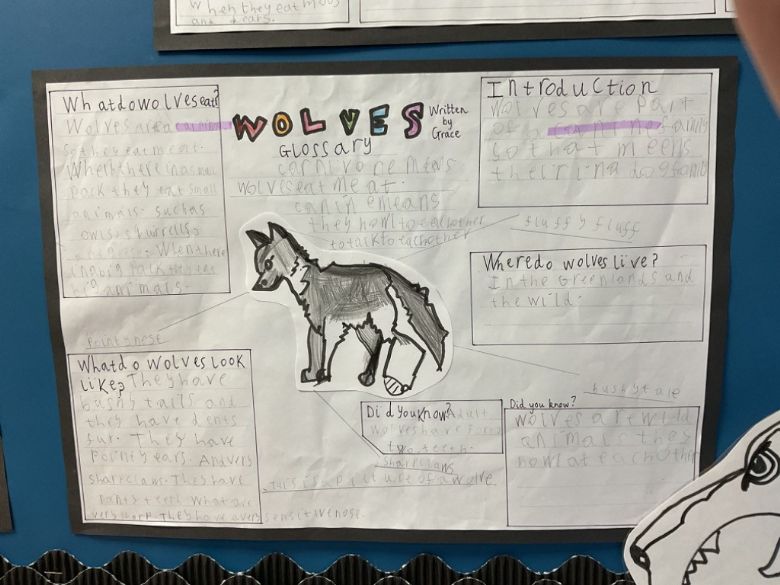 when they eat
and
WOLVES
Written
by
Grace
Glossary
carnivore means
wolves eat meat.
canine means
they howl to eachother
to talk to eachother
What do wolves eat?
Wolves
So they eat meat.
When there in a small
pack they eat small
animals. such as
owls,
When there
in a big they eat
big animals.
Introduction
wolves are part
of family
so that meens
their in a dog family
fluffy fluff
Where do wolves live?
In the Greenlands and
the wild.
pointy nose
bushy tale
What do wolves look
like? They have
bushy tails and
they have
fur. They have
pointy ears. And very
sharp claws. They have
what are
very sharp. They have a very sensitive nose.
Did you know? Adult
wolves have forty
two teeth.
sharp claws
This is a picture of a wolve
Did you know?
wolves are wild
animals they
howl at each other